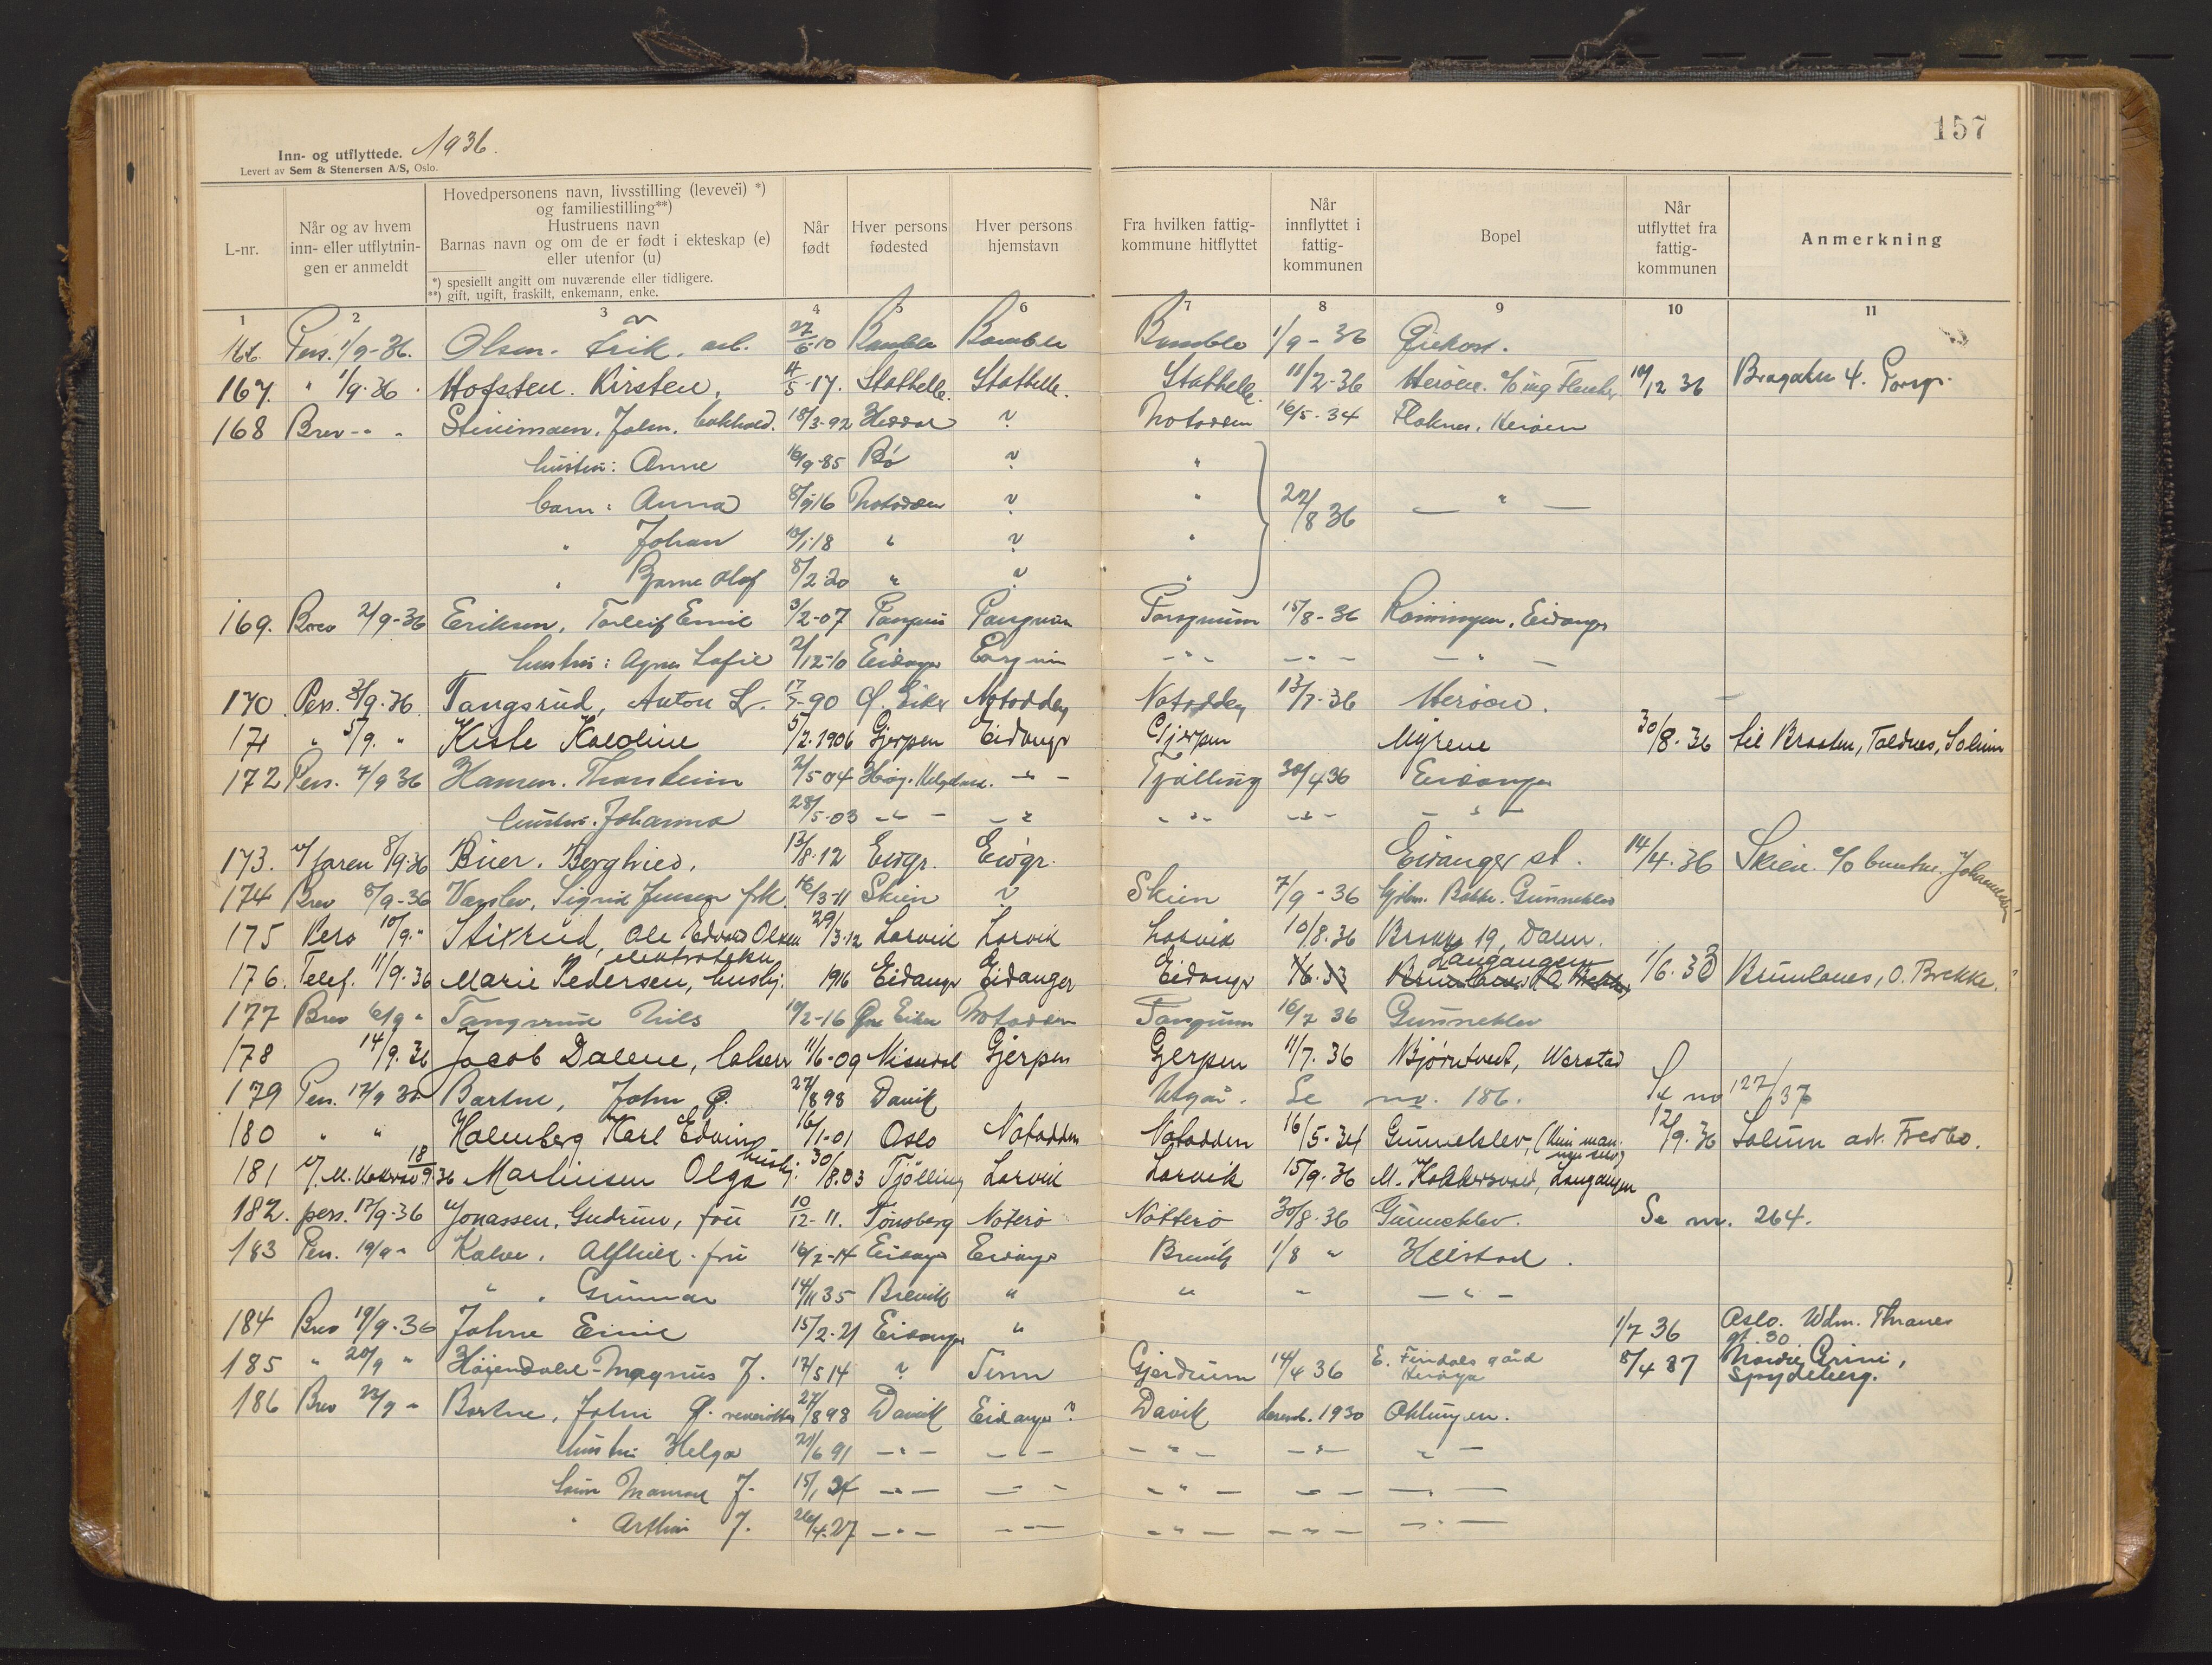 157
Inn- og utflyttede. 1936.
Levert av Sem & Stenersen A/S, Oslo.
L-nr. | Når og av hvem inn- eller utflytningen er anmeldt | Hovedpersonens navn, livsstilling (levevei) *) og familiestilling**) Hustruens navn Barnas navn og om de er født i ekteskap (e) eller utenfor (u) *) spesiellt angitt om nuværende eller tidligere. **) gift, ugift, fraskilt, enkemann, enke. | Når født | Hver persons fødested | Hver persons hjemstavn | Fra hvilken fattigkommune hitflyttet | Når innflyttet i fattigkommunen | Bopel | Når utflyttet fra fattigkommunen | Anmerkning
1 2 3 4 5 6 7 8 9 10 11
166. Pers. 1/9-36. Olsen. Erik. arb. 27/6-10 Bamble Bamble Bamble 1/9-36
167. " 1/9-36. Hofsten. Kirsten. Stathelle. Stathelle. Stathelle. 11/2-36 Herøen. c/o ing 10/12 36 Bragatn 4. Porsgr.
168 Brev - " - John. 18/3-92 Heddal ? Notodden 16/5-34 Flakner. Herøen
hustru: Anne 16/9-85 Bø ? "
barn: Anna 8/9 16 Notodden ? " 22/8 36 — " —
" Johan 13/1-18 " ? "
" Bjarne Olaf 8/2 20 " ? "
169. Brev 2/9-36 Eriksen, Torleif Emil 3/2-07 Porsgrunn Porsgrunn Porsgrunn 15/8-36 Eidanger
hustru: Agnes Sofie 2/12-10 Eidanger Porsgrunn - " - - " - - " -
170. Pers. 3/9-36. Tangerud, Anton L. Ø. Eiker Notodden Notodden 13/7-36 Herøen.
171 " 5/9. " Kiste Karoline 5/2-1906 Gjerpen Eidanger Gjerpen Myrene 30/8-36 til Brosten, Toldnes, Solum
172 Pers. 7/9 36 Hansen. 2/5 04 - " - Tjølling 30/4 36 Eidanger
hustru. Johanna 28/5-03 - " - - " - " - - " - - " -
173. v/ faren 8/9-36 Buer. Borghild. 13/8-12 Eidgr. Eidgr. Eidanger st. 14/4-36 Skien. c/o
174 Brev 8/9-36 Sigrid Jensen frk. 16/3-11 Skien ? Skien 7/9-36 Bakke. Gunneklev
175 Pers 10/9-" Stixrud, Ole Edvard Olsen 29/3-12 Larvik Larvik Larvik 10/8-36
176. Telef. 11/9-36 Marie Pedersen, hushj. 1916 Eidanger Eidanger Eidanger 1/6-33 Langangen 1/6-33 Brunlanes, O. Brekke.
177 Brev 6/9 " Tangerud Nils 10/2-16 Øvre Eiker Notodden Porsgrunn 16/7 36 Gunneklev
178 14/9.36 Jacob Dalene, 11/6-09 Nissedal Gjerpen Gjerpen 11/7.36 Bjørntvedt,
179 Pers. 17/9 36 Bortne, John P. 27/8 98 Davik Utgår. Se nr. 186. Se nr 127/37
180 " " Holmberg Karl Edvin 16/1-01 Oslo Notodden Notodden 16/5-34 Gunneklev, 12/9-36 Solum
181 18/9 36 Martinsen Olga hushj. 30/8.03 Tjølling Larvik Larvik 15/9-36 Langangen
182. pers. 17/9-36 Jonassen, Gudrun, fru 10/12-11. Tønsberg Nøterø Nøtterø 30/8-36 Gunneklev. Se nr. 264.
183 Pers. 19/9 " Kalve. Alfhild. fru 16/2-14 Eidanger Eidanger Brevik 1/8 " Heistad.
" . Gunnar 14/11 35 Brevik " " " - " -
184 Brev 19/9-36 15/2-21 Eidanger " 1/7 36 Oslo. Wdm. Thranes gt. 30
185 " 20/9 " Høiendahl Magnus J. 17/5 14 ? Tinn Gjerdrum 14/4 36 E. Findals gård Herøya 8/4 37 Spydeberg.
186 Brev 22/9 " Bortne, John P. 27/8 98 Davik Eidanger? Davik Desemb. 1930
hustru Helga 21/6 91 - " - - " - - " - - " - - " -
barn J. - " - - " - - " - - " - - " -
" Arthur J. 26/4-27 - " - - " - - " - - " - - " -